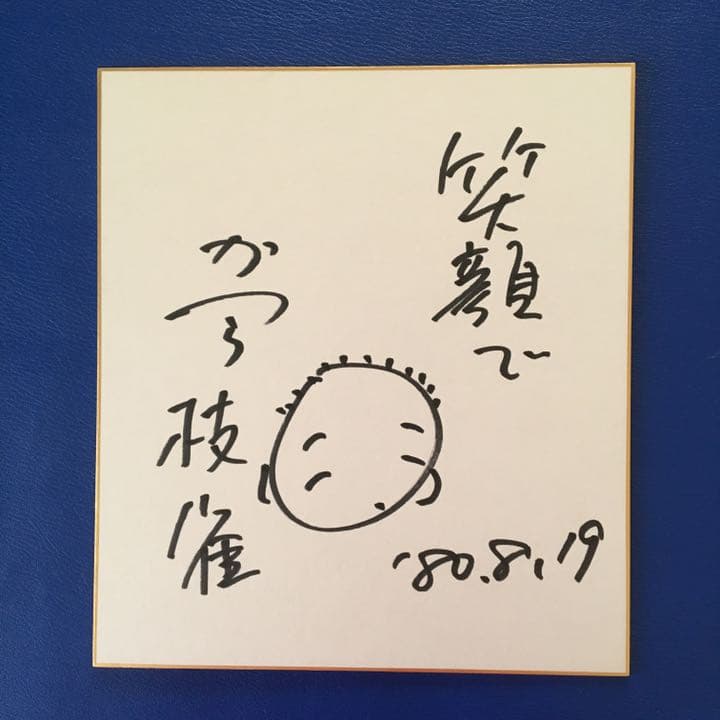 笑顔で
かつら枝雀
'80.8.19